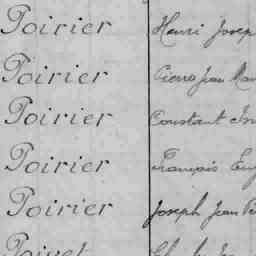 Poirier Henri Josep
Poirier Pierre Jean Mar
Poirier Constant
Poirier François Eug
Poirier Joseph Jean
Poivet